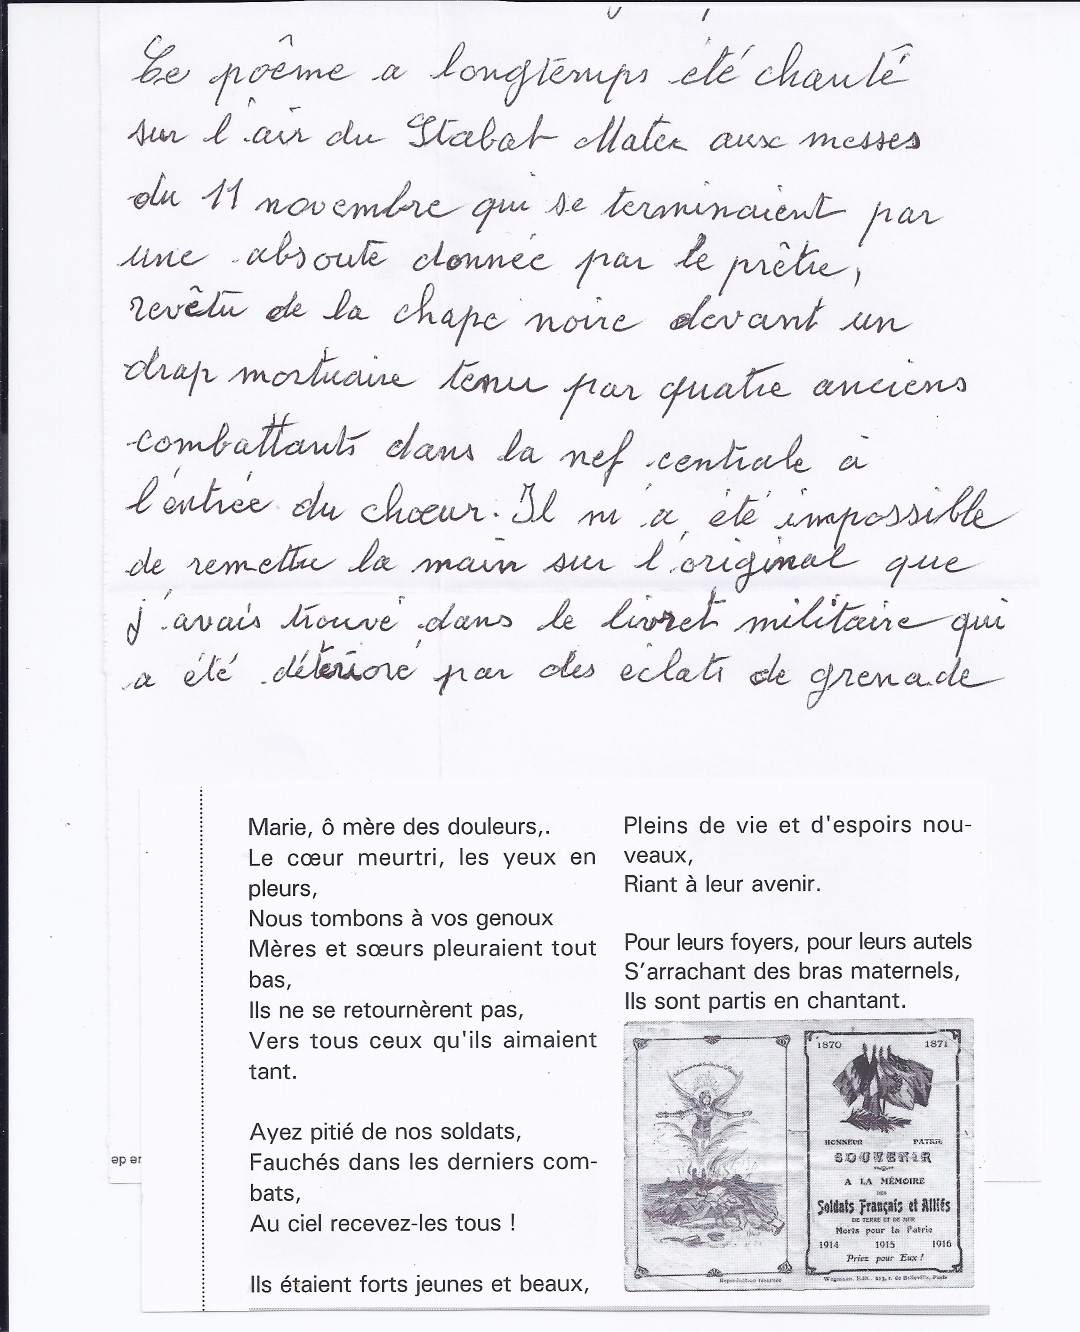 Ce poême a longtemps été chanté
sur l'air du Stabat Mater aux messes
du 11 novembre qui se terminaient par
une absoute donnée par le prêtre,
revêtu de la chape noire devant un
drap mortuaire tenu par quatre anciens
combattants dans la nef centrale à
l'entrée du chœur. Il m'a été impossible
de remettre la main sur l'original que
j'avais trouvé dans le livret militaire qui
a été détérioré par des éclats de grenade
Marie, ô mère des douleurs,.
Le cœur meurtri, les yeux en
pleurs,
Nous tombons à vos genoux
Mères et sœurs pleuraient tout
bas,
Ils ne se retournèrent pas,
Vers tous ceux qu'ils aimaient
tant.
Ayez pitié de nos soldats,
Fauchés dans les derniers com-
bats,
Au ciel recevez-les tous !
Ils étaient forts jeunes et beaux,
Pleins de vie et d'espoirs nou-
veaux,
Riant à leur avenir.
Pour leurs foyers, pour leurs autels
S'arrachant des bras maternels,
Ils sont partis en chantant.
1870 1871
HONNEUR PATRIE
SOUVENIR
A LA MÉMOIRE
DES
Soldats Français et Alliés
DE TERRE ET DE MER
Morts pour la Patrie
1914 1915 1916
Priez pour Eux !
Reproduction réservée
Wagemann, Edit., 213, r. de Belleville, Paris